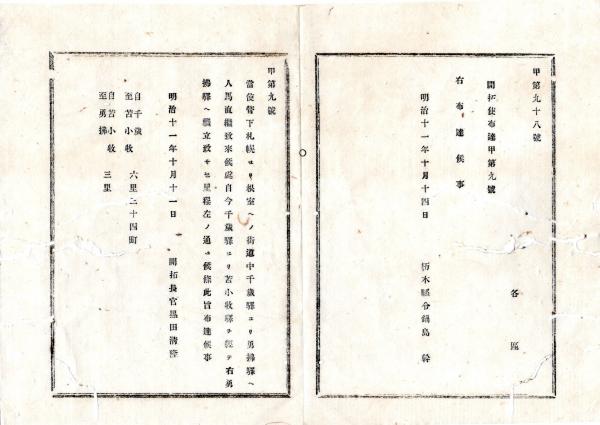 甲第九十八號
各區
開拓使布達甲第九號
右布達候事
明治十一年十月十四日
栃木縣令鍋島幹
甲第九號
當使管下札幌ヨリ根室ヘノ街道中千歲驛ヨリ勇拂驛ヘ
人馬直繼致來候處自今千歲驛ヨリ苫小牧驛ヲ經テ右勇
拂驛ヘ繼立致サセ里程左ノ通ニ候條此旨布達候事
明治十一年十月十一日
開拓長官黑田淸隆
自千歲
至苫小牧 六里二十四町
自苫小牧
至勇拂 三里